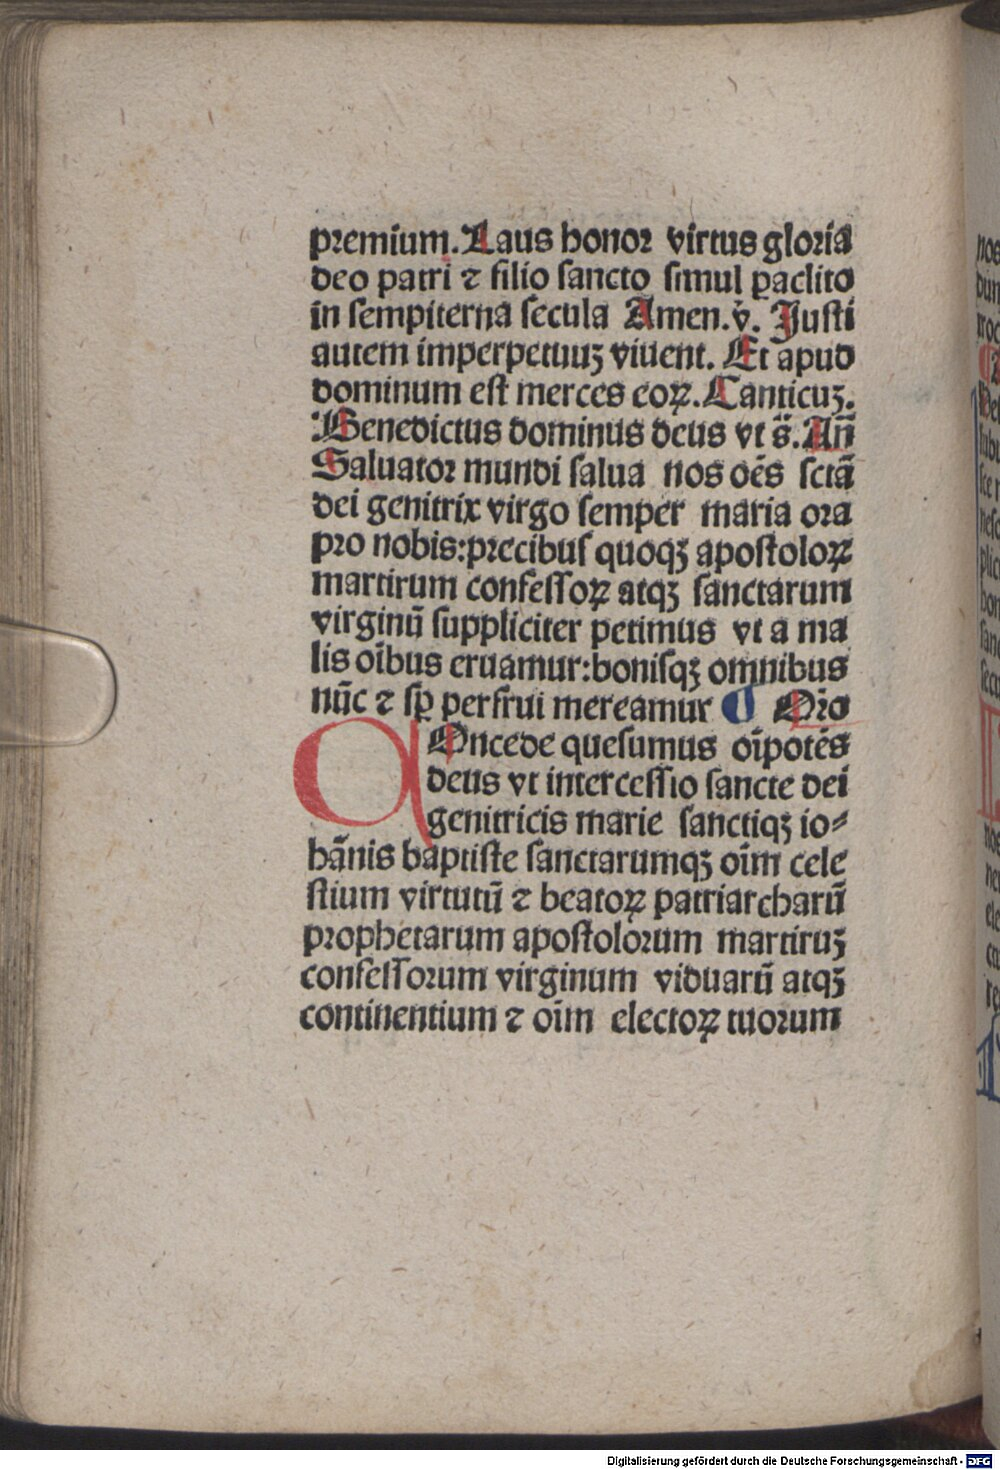 premium. Laus honor virtus gloria
deo patri ⁊ filio sancto simul ꝑaclito
in sempiterna secula Amen. v̾. Justi
autem imperpetuuꝫ viuent. Et apud
dominum est merces eoꝝ. Canticuꝫ.
Benedictus dominus deus vt s̄. An̄
Saluator mundi salua nos oēs sctā
dei genitrix virgo semper maria ora
pro nobis: precibus quoqꝫ apostoloꝝ
martirum confessoꝝ atqꝫ sanctarum
virginū suppliciter petimus vt a ma
lis oībus eruamur: bonisqꝫ omnibus
nūc ⁊ sꝑ perfrui mereamur Oro
Oncede quesumus oīpotēs
deus vt intercessio sancte dei
genitricis marie sanctiqꝫ io⸗
hānis baptiste sanctarumqꝫ oīm cele
stium virtutū ⁊ beatoꝝ patriarcharū
prophetarum apostolorum martiruꝫ
confessorum virginum viduarū atqꝫ
continentium ⁊ oīm electoꝝ tuorum
Digitalisierung gefördert durch die Deutsche Forschungsgemeinschaft - DFG